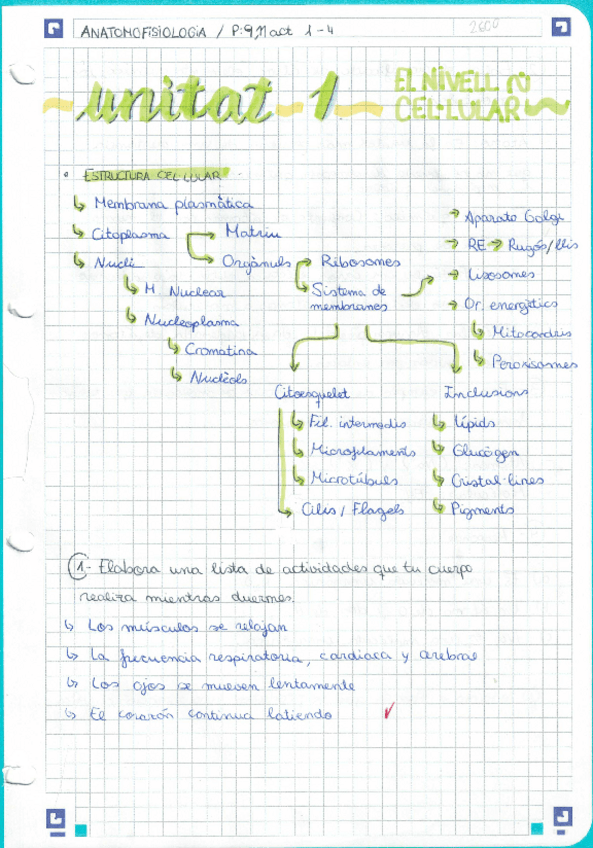 ANATOMOFISIOLOGIA / P:9,11 act 1-4
2600
unitat 1
EL NIVELL
CEL·LULAR
ESTRUCTURA CEL·LULAR
Membrana plasmàtica
Citoplasma
Matriu
Orgànuls
Ribosomes
Sistema de
membranes
Aparato Golgi
RE → Rugós/llis
Lisosomes
Or. energètics
Mitocondris
Peroxisomes
Nucli
M. Nuclear
Nucleoplasma
Cromatina
Nuclèols
Citoesquelet
Fil. intermedis
Microfilaments
Microtúbuls
Cilis / Flagels
Inclusions
Lípids
Glucògen
Cristal·lines
Pigments
1- Elabora una lista de actividades que tu cuerpo
realiza mientras duermes.
Los músculos se relajan
La frecuencia respiratoria, cardiaca y cerebral
Los ojos se mueven lentamente
El corazón continua latiendo